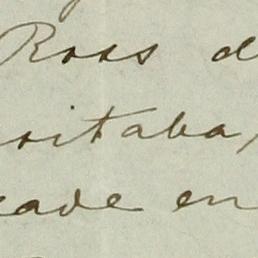 Ross d
sitaba,
cade en